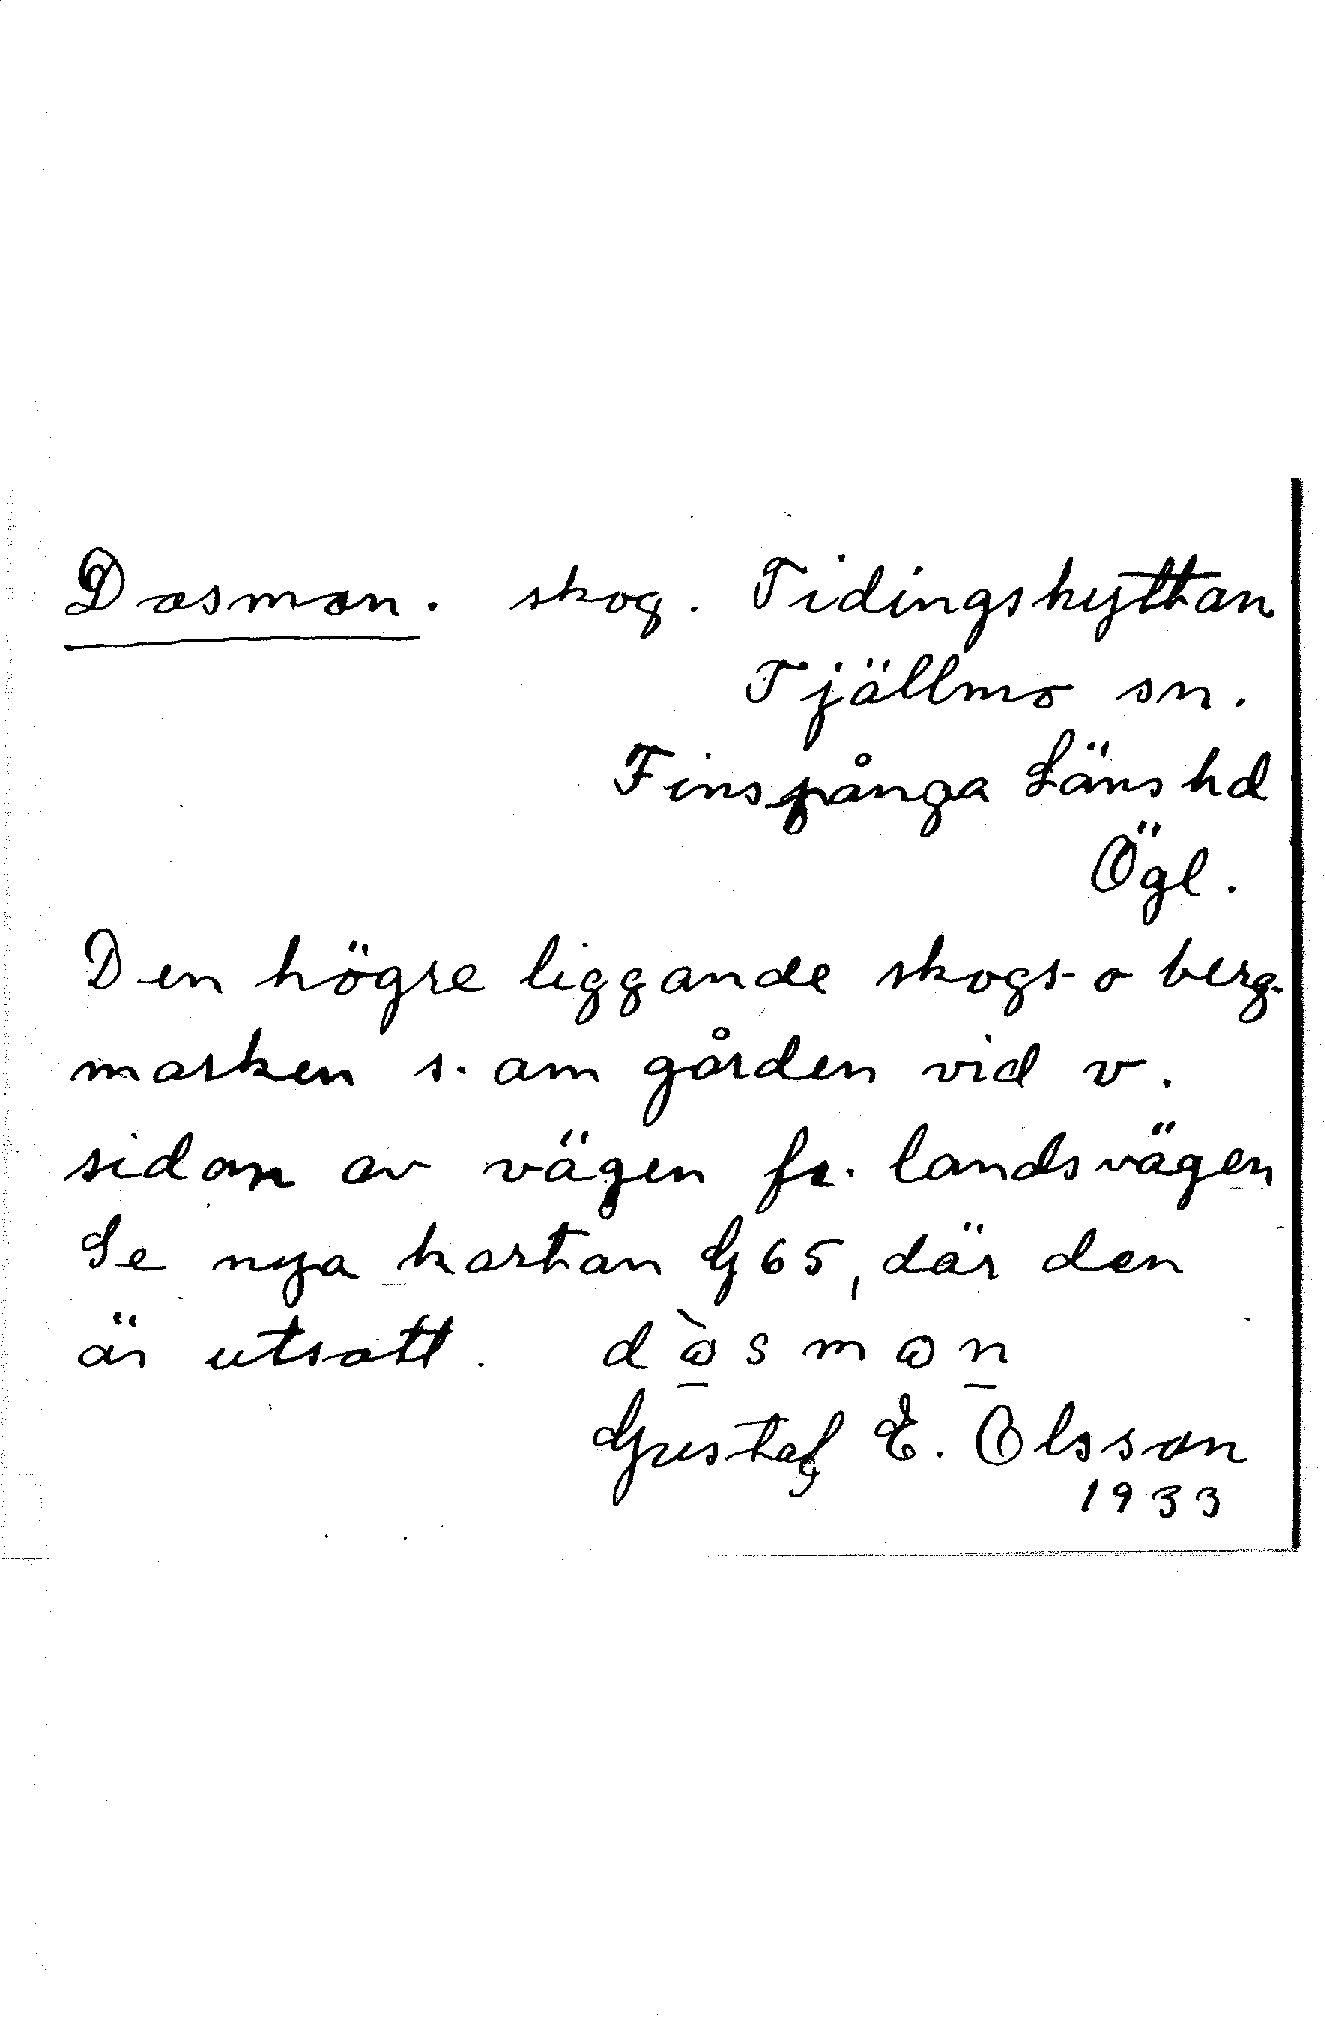 Dosmon. skog. Tidingshyttan
Tjällmo sn.
Finspånga Läns hd
Ögl.
Den högre liggande skogs- o berg-
marken s. om gården vid v.
sidan av vägen fr. landsvägen
Se nya kartan G 65, där den
är utsatt. dò̱smon̲
Gustaf E. Olsson
1933